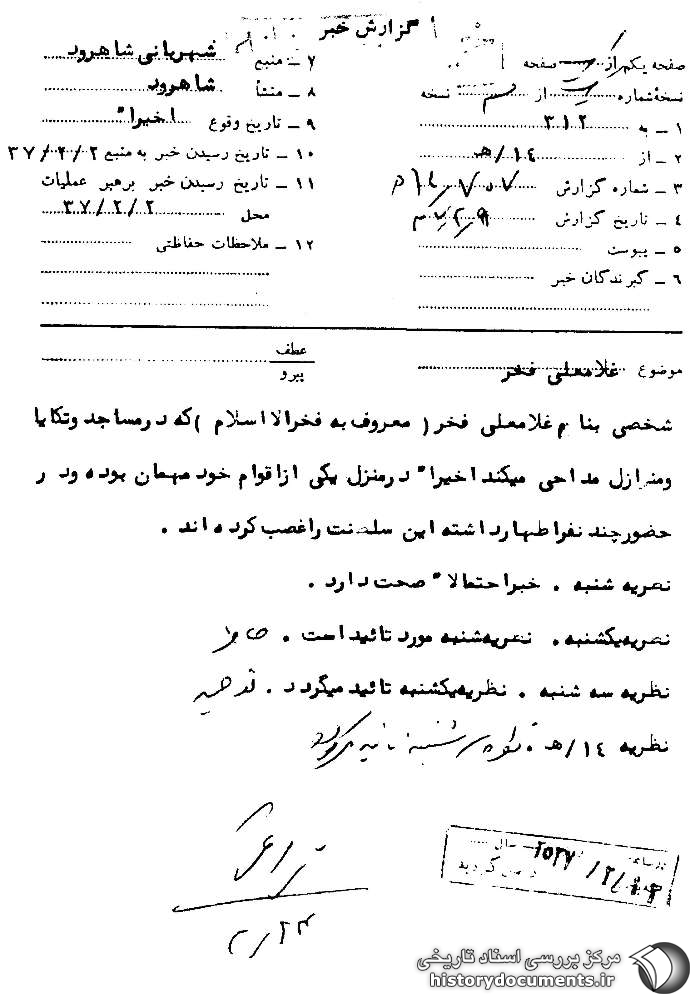 گزارش خبر
صفحه یکم از یک صفحه
نسخهٔ شماره از نسخه
۱ ـ به ۳۱۲
۲ ـ از ۱۴/هـ
۳ ـ شماره گزارش
۴ ـ تاریخ گزارش
۵ ـ پیوست
۶ ـ گیرندگان خبر
۷ ـ منبع شهربانی شاهرود
۸ ـ منشأ شاهرود
۹ ـ تاریخ وقوع اخیراً
۱۰ ـ تاریخ رسیدن خبر به منبع ۳۷/۲/۲
۱۱ ـ تاریخ رسیدن خبر برهبر عملیات
محل ۳۷/۲/۲
۱۲ ـ ملاحظات حفاظتی
موضوع غلامعلی فخر
عطف
پیرو
شخصی بنام غلامعلی فخر (معروف به فخرالاسلام) که درمساجد وتکایا
ومنازل مداحی میکند اخیراً درمنزل یکی ازاقوام خود مهمان بوده ودر
حضورچند نفراظهارداشته این سلطنت راغصب کرده اند .
نظریه شنبه . خبراحتمالاً صحت دارد .
نظریه یکشنبه . نظریه شنبه مورد تائید است .
نظریه سه شنبه . نظریه یکشنبه تائید میگردد .
نظریه ۱۴/هـ . نظریه سه شنبه تائید میگردد
۲/۲۳
مرکز بررسی اسناد تاریخی
historydocuments.ir